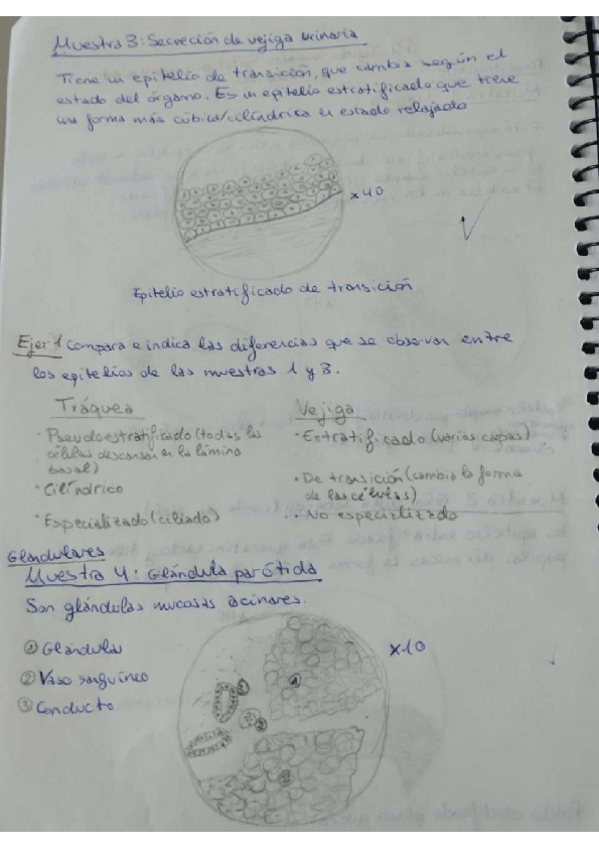 Muestra 3: Secreción de vejiga urinaria
Tiene un epitelio de transición, que cambia según el
estado del órgano. Es un epitelio estratificado que tiene
una forma más cúbica/cilíndrica en estado relajado
x40
Epitelio estratificado de transición
Ejer 1 compara e indica las diferencias que se observan entre
los epitelios de las muestras 1 y 3.
Tráquea
· Pseudoestratificado (todas las
células descansan en la lámina
basal)
· Cilíndrico
· Especializado (ciliado)
Vejiga
· Estratificado (varias capas)
· De transición (cambia la forma
de las células)
· No especializado
Glandulares
Muestra 4: Glándula parótida
Son glándulas mucosas acinares.
① Glándulas
② Vaso sanguíneo
③ Conducto
x10
1
3
2